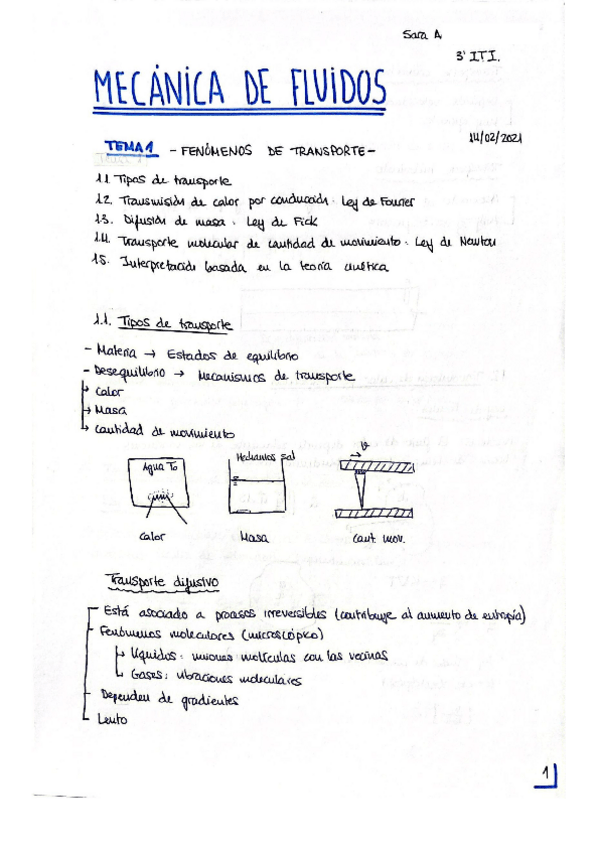 Sara A
3º ITI.
MECÁNICA DE FLUIDOS
14/02/2021
TEMA 1 - FENÓMENOS DE TRANSPORTE -
1.1 Tipos de transporte
1.2. Transmisión de calor por conducción. Ley de Fourier
1.3. Difusión de masa. Ley de Fick
1.4. Transporte molecular de cantidad de movimiento. Ley de Newton
1.5. Interpretación basada en la teoría cinética
1.1. Tipos de transporte
- Materia → Estados de equilibrio
- Desequilibrio → Mecanismos de transporte
→ Calor
→ Masa
→ Cantidad de movimiento
Agua To
Hechamos sal
v
Calor
Masa
Cant mov.
Transporte difusivo
Está asociado a procesos irreversibles (contribuye al aumento de entropía)
Fenómenos moleculares (microscópico)
→ Líquidos: uniones moléculas con las vecinas
→ Gases: vibraciones moleculares
Dependen de gradientes
Lento
1